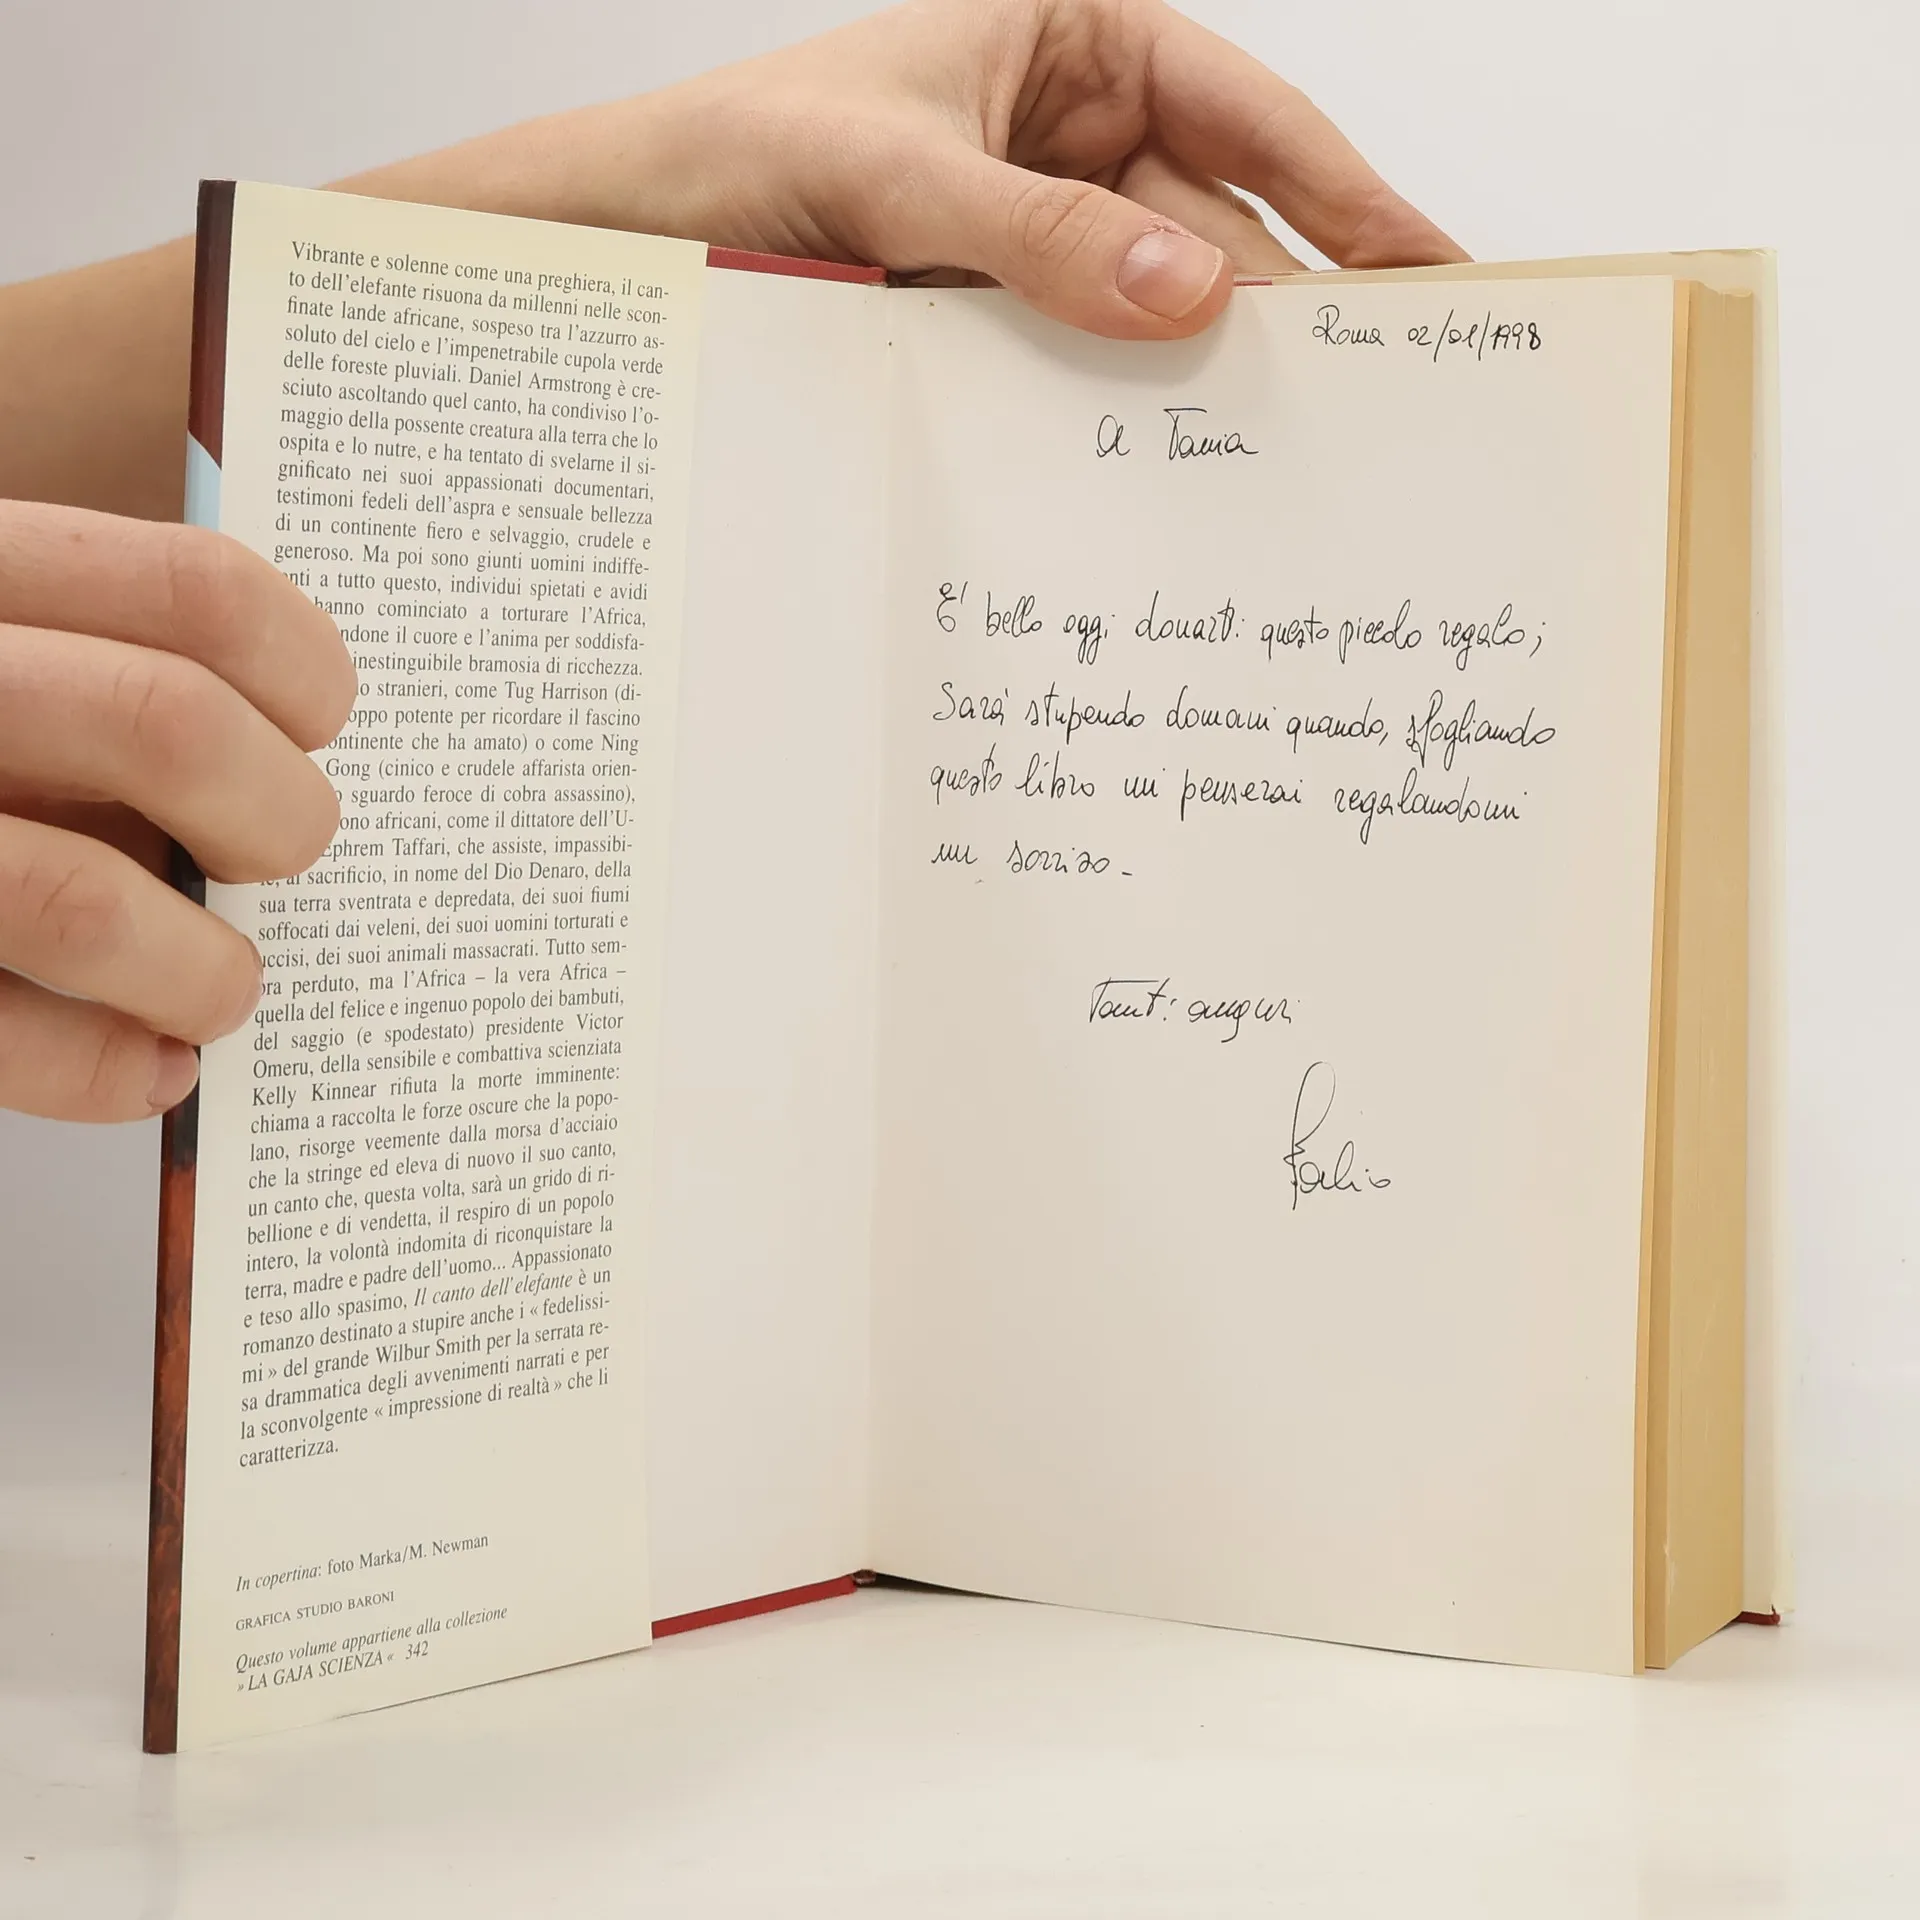 Vibrante e solenne come una preghiera, il can-
to dell'elefante risuona da millenni nelle scon-
finate lande africane, sospeso tra l'azzurro as-
soluto del cielo e l'impenetrabile cupola verde
delle foreste pluviali. Daniel Armstrong è cre-
sciuto ascoltando quel canto, ha condiviso l'o-
maggio della possente creatura alla terra che lo
ospita e lo nutre, e ha tentato di svelarne il si-
gnificato nei suoi appassionati documentari,
testimoni fedeli dell'aspra e sensuale bellezza
di un continente fiero e selvaggio, crudele e
generoso. Ma poi sono giunti uomini indiffe-
nti a tutto questo, individui spietati e avidi
hanno cominciato a torturare l'Africa,
ndone il cuore e l'anima per soddisfa-
inestinguibile bramosia di ricchezza.
o stranieri, come Tug Harrison (di-
oppo potente per ricordare il fascino
ontinente che ha amato) o come Ning
Gong (cinico e crudele affarista orien-
o sguardo feroce di cobra assassino),
ono africani, come il dittatore dell'U-
Ephrem Taffari, che assiste, impassibi-
le, al sacrificio, in nome del Dio Denaro, della
sua terra sventrata e depredata, dei suoi fiumi
soffocati dai veleni, dei suoi uomini torturati e
uccisi, dei suoi animali massacrati. Tutto sem-
bra perduto, ma l'Africa – la vera Africa –
quella del felice e ingenuo popolo dei bambuti,
del saggio (e spodestato) presidente Victor
Omeru, della sensibile e combattiva scienziata
Kelly Kinnear rifiuta la morte imminente:
chiama a raccolta le forze oscure che la popo-
lano, risorge veemente dalla morsa d'acciaio
che la stringe ed eleva di nuovo il suo canto,
un canto che, questa volta, sarà un grido di ri-
bellione e di vendetta, il respiro di un popolo
intero, la volontà indomita di riconquistare la
terra, madre e padre dell'uomo... Appassionato
e teso allo spasimo, Il canto dell'elefante è un
romanzo destinato a stupire anche i « fedelissi-
mi » del grande Wilbur Smith per la serrata re-
sa drammatica degli avvenimenti narrati e per
la sconvolgente « impressione di realtà » che li
caratterizza.
In copertina: foto Marka/M. Newman
GRAFICA STUDIO BARONI
Questo volume appartiene alla collezione
» LA GAJA SCIENZA « 342
Roma 02/01/1998
A Tania
E' bello oggi donarti questo piccolo regalo;
Sarà stupendo domani quando, sfogliando
questo libro mi penserai regalandomi
un sorriso -
Tanti auguri
Fabio